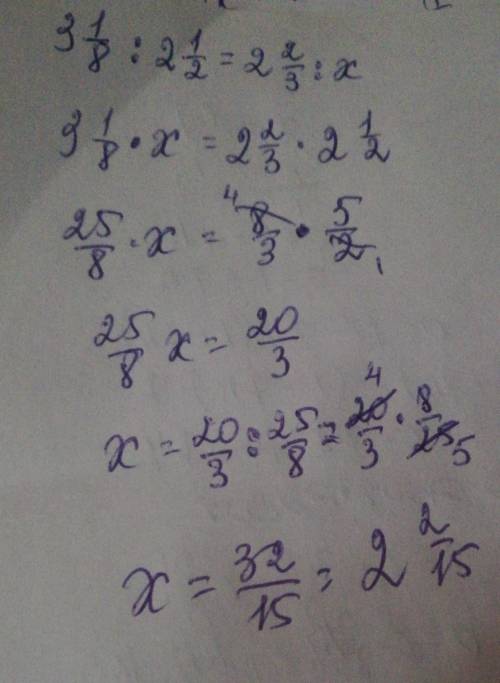 3 1/8 : 2 1/2 = 2 2/3 : x
3 1/8 · x = 2 2/3 · 2 1/2
25/8 · x = 4 8/3 · 5/2 1
25/8 x = 20/3
x = 20/3 : 25/8 = 4 20/3 · 8/25 5
x = 32/15 = 2 2/15